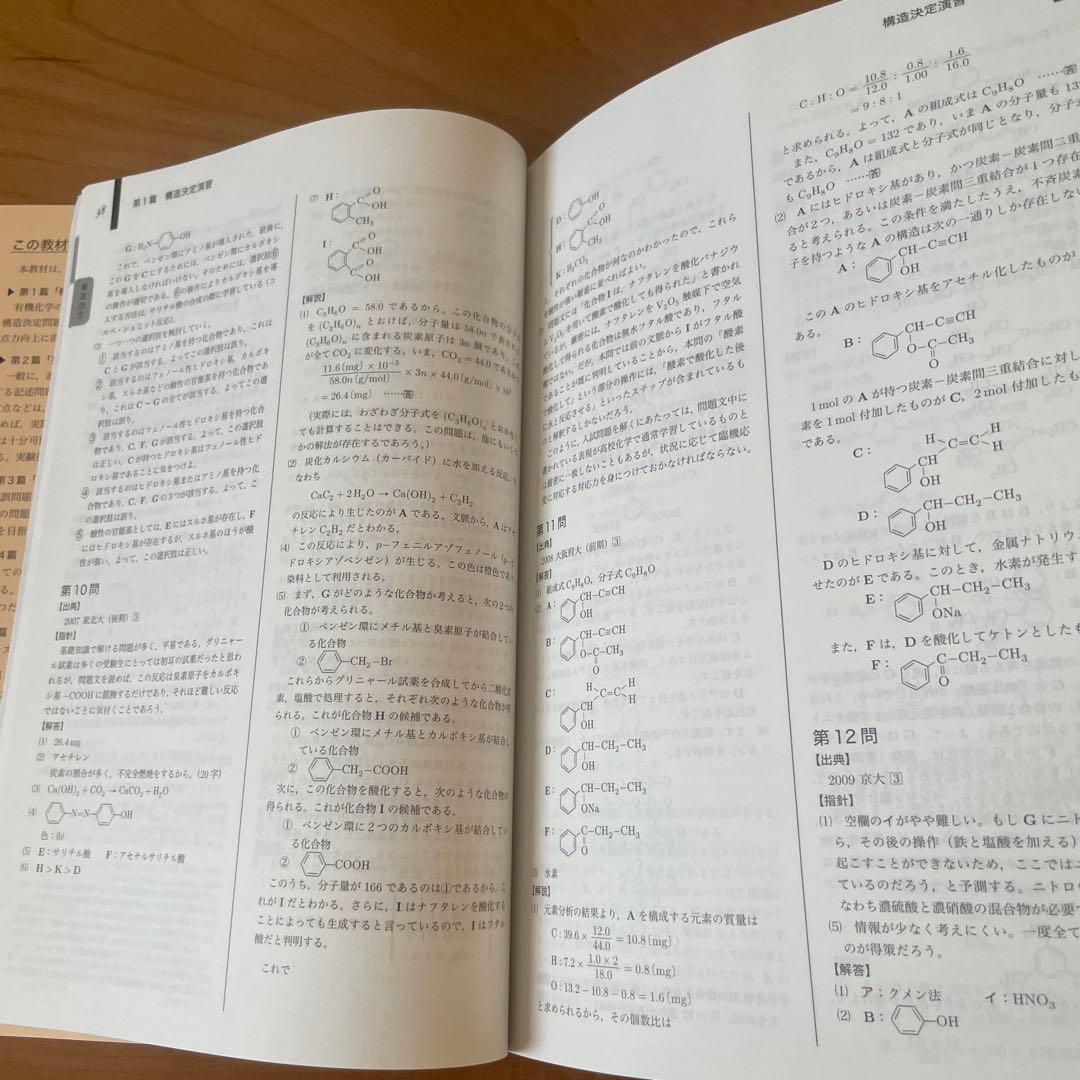 この教材
本教材は、
▶ 第1篇「
有機化学の
構造決定問
点力向上に
▶ 第2篇
一般に，
る記述問題
点などは、
めば，実際
は十分可
る。実験
第3篇「
誤問題
の問題
を目指
38
第1篇 構造決定演習
構造決定
G：H₂N-OH
これで，ベンゼン環にアミノ基が導入された。最後に，
このGをCにするためには，ベンゼン環にカルボキシ
基を導入しなければいけない。そのためには，選択肢⑥
の操作が適切である。⑥の操作によりカルボキシ基を導
入する方法は，サリチル酸の合成の際に学習している（コ
ルベ・シュミット反応）。
(3) 一つ一つの選択肢を検討していく。
① 該当するのはアミノ基を持つ化合物であり，これは
CとGが該当する。よってこの選択肢は誤り。
② 該当するのはフェノール性ヒドロキシ基，カルボキ
シ基，スルホ基などの酸性の官能基を持つ化合物であ
り，これはC～Gの全てが該当する。よってこの選
択肢は誤り。
③ 該当するのはフェノール性ヒドロキシ基を持つ化合
物であり，C, F, Gが該当する。よって，この選択肢
は正しい。Cが持つヒドロキシ基はフェノール性ヒド
ロキシ基であることに気をつけよ。
④ 該当するのはヒドロキシ基またはアミノ基を持つ化
合物であり，C, F, Gの3つが該当する。よって，こ
の選択肢は誤り。
⑤ 酸性の官能基としては，Eにはスルホ基が存在し，F
にはヒドロキシ基が存在するが，スルホ基のほうが酸
性が強い。よって，この選択肢は正しい。
第10問
【出典】
2007 東北大（後期）3
【指針】
基礎知識で解ける問題が多く，平易である。グリニャー
ル試薬は多くの受験生にとっては初耳の試薬だったと思わ
れるが，問題文を読めば，この反応は臭素原子をカルボキ
シ基-COOHに置換するだけであり，それほど難しい反応
ではないことに気付くことであろう。
【解答】
(1) 26.4 mg
(2) アセチレン
炭素の割合が多く，不完全燃焼をするから。(20字)
(3) Ca(OH)₂+CO₂→CaCO₃+H₂O
(4) -N=N-OH
色：(b)
(5) E：サリチル酸 F：アセチルサリチル酸
(6) H>K>D
(7) H：
C O
OH
CH₃
I：
C O
OH
C OH
O
【解説】
(1) C₃H₆O＝58.0であるから，この化合物の分子式
を(C₃H₆O)ₙとおけば，分子量は58.0nで表され
(C₃H₆O)ₙに含まれる炭素原子は3n個であり，これ
が全てCO₂に変化する。いま，CO₂＝44.0であるから
11.6(mg)×10⁻³ / 58.0n(g/mol) ×3n×44.0(g/mol)×10³
＝26.4(mg) ……(答)
(実際には，わざわざ分子式を(C₃H₆O)ₙとおかなく
ても計算することはできる。この問題は，他にもいくつ
かの解法が存在するであろう。)
(2) 炭化カルシウム（カーバイド）に水を加える反応，す
なわち
CaC₂+2H₂O→Ca(OH)₂+C₂H₂
の反応により生じたのがAである。文脈から，Aはアセ
チレンC₂H₂だとわかる。
(4) この反応により，p-フェニルアゾフェノール(p-ヒ
ドロキシアゾベンゼン)が生じる。この色は橙色であり
染料として利用される。
(5) まず，Gがどのような化合物か考えると，次の2つの
化合物が考えられる。
① ベンゼン環にメチル基と臭素原子が結合してい
る化合物
② -CH₂-Br
これらからグリニャール試薬を合成してから二酸化炭
素，塩酸で処理すると，それぞれ次のような化合物が得
られる。これが化合物Hの候補である。
① ベンゼン環にメチル基とカルボキシ基が結合し
ている化合物
② -CH₂-COOH
次に，この化合物を酸化すると，次のような化合物が
得られる。これが化合物Iの候補である。
① ベンゼン環に2つのカルボキシ基が結合してい
る化合物
② -COOH
このうち，分子量が166であるのは①であるから，こ
れがIだとわかる。さらに，Iはナフタレンを酸化する
ことによっても生成すると言っているので，Iはフタル
酸だと判明する。
これで
構造決定演習
D： OH
H： C O
OH
CH₃
K：H₂CO₃
と，それぞれの化合物が何なのかわかったので，これら
を酸性が強い順番に並べればよい。
問題文には「化合物Iは，ナフタレンを酸化バナジウ
ムV₂O₅を用いて酸素で酸化しても得られた」と書かれ
ているが，厳密には，ナフタレンをV₂O₅触媒下で空気
酸化して得られる化合物は無水フタル酸であり，フタル
酸ではない。だが，本問では前の文脈からIがフタル酸
であることが既に判明していることから，本問の「酸素
で酸化して」という部分の操作には，「酸素で酸化した後
に水と反応させる」といったステップが含まれているも
のと解釈するしかないだろう。
このように，入試問題を解くにあたっては，問題文中に
書かれている表現が高校化学で通常学習しているものと
は厳密に一致しないこともあるが，状況に応じて臨機応
変に対応する対応力を身につけておかなければならない。
第11問
【出典】
2008 大阪府大（前期）3
【解答】
(1) 組成式C₉H₈O，分子式C₉H₈O
(2) A： CH-C≡CH
OH
B： CH-C≡CH
O-C-CH₃
O
C： H C=C H
CH H
OH
D： CH-CH₂-CH₃
OH
E： CH-CH₂-CH₃
ONa
F： C-CH₂-CH₃
O
(3) 水素
【解説】
(1) 元素分析の結果より，Aを構成する元素の質量は
C：39.6×12.0/44.0＝10.8(mg)
H：7.2×1.0×2/18.0＝0.8(mg)
O：13.2－10.8－0.8＝1.6(mg)
と求められるから，その個数比は
C：H：O＝10.8/12.0：0.8/1.00：1.6/16.0
＝9：8：1
と求められる。よって，Aの組成式はC₉H₈O ……(答)
また，C₉H₈O＝132であり，いまAの分子量も132
であるから，Aは組成式と分子式が同じとなり，分子式
もC₉H₈O ……(答)
(2) Aにはヒドロキシ基があり，かつ炭素－炭素間二重
合が2つ，あるいは炭素－炭素間三重結合が1つ存在
ると考えられる。この条件を満たしたうえ，不斉炭素
子を持つようなAの構造は次の一通りしか存在しない
A： CH-C≡CH
OH
このAのヒドロキシ基をアセチル化したものが
ある。
B： CH-C≡CH
O-C-CH₃
O
1 molのAが持つ炭素－炭素三重結合に対し
素を1 mol付加したものがC，2 mol付加したも
である。
C： H C=C H
CH H
OH
D： CH-CH₂-CH₃
OH
Dのヒドロキシ基に対して，金属ナトリウ
せたのがEである。このとき，水素が発生す
E： CH-CH₂-CH₃
ONa
また，Fは，Dを酸化してケトンとしたも
F： C-CH₂-CH₃
O
第12問
【出典】
2009 京大 3
【指針】
(1) 空欄のイがやや難しい。もしGにニト
ら，その後の操作（鉄と塩酸を加える）
起こすことができないため，ここではニ
ているのだろう，と予測する。ニトロ
なわち濃硫酸と濃硝酸の混合物が必要
(5) 情報が少なく考えにくい。一度全て
のが得策だろう。
【解答】
(1) ア：クメン法 イ：HNO₃
(2) B： -OH